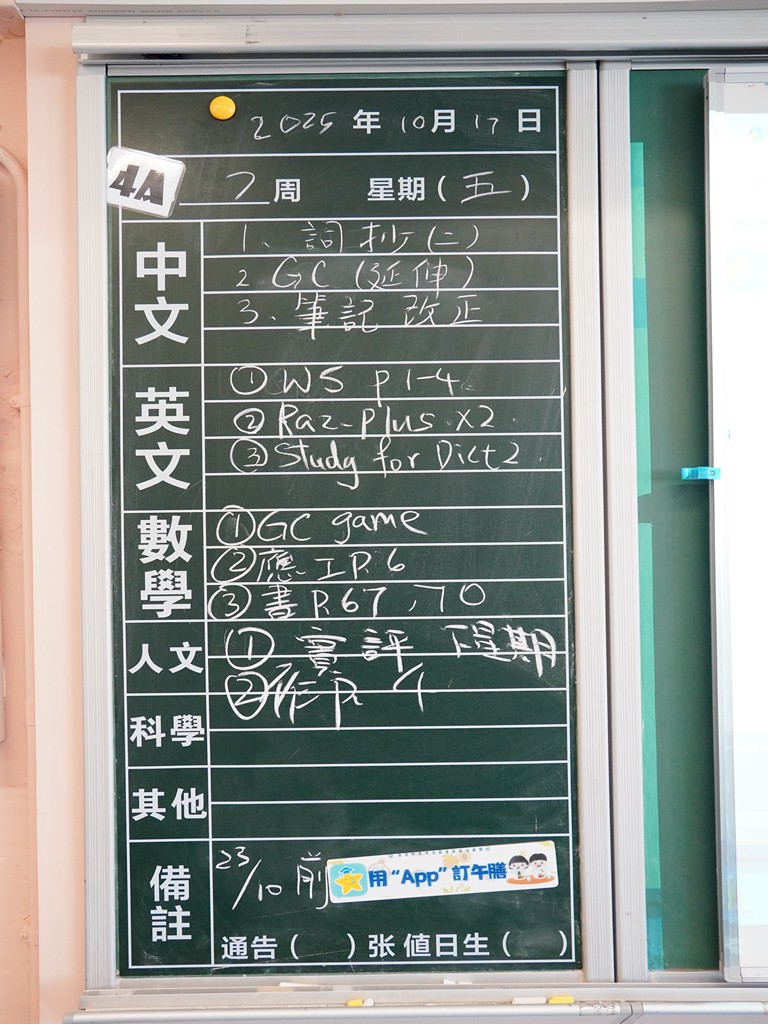 2025 年 10 月 17 日
4A
7 周 星期 ( 五 )
中文
1、詞抄(二)
2 GC (延伸)
3、筆記 改正
英文
① WS p 1-4.
② Raz-plus x2.
③ Study for Dict 2.
數學
① GC game
② 應工 P. 6
③ 書 P. 67, 70
人文
① 實評 下星期
② 作 P. 4
科學
其他
備註
23/10 前
用“App”訂午膳
通告 ( ) 张 值日生 ( )